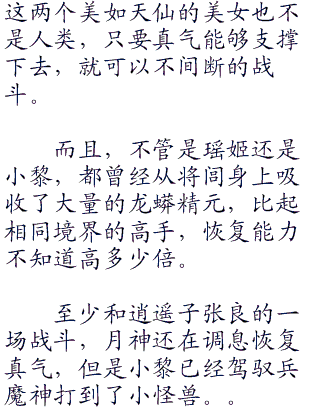 这两个美如天仙的美女也不
是人类，只要真气能够支撑
下去，就可以不间断的战
斗。
而且，不管是瑶姬还是
小黎，都曾经从将闾身上吸
收了大量的龙蟒精元，比起
相同境界的高手，恢复能力
不知道高多少倍。
至少和逍遥子张良的一
场战斗，月神还在调息恢复
真气，但是小黎已经驾驭兵
魔神打到了小怪兽。。